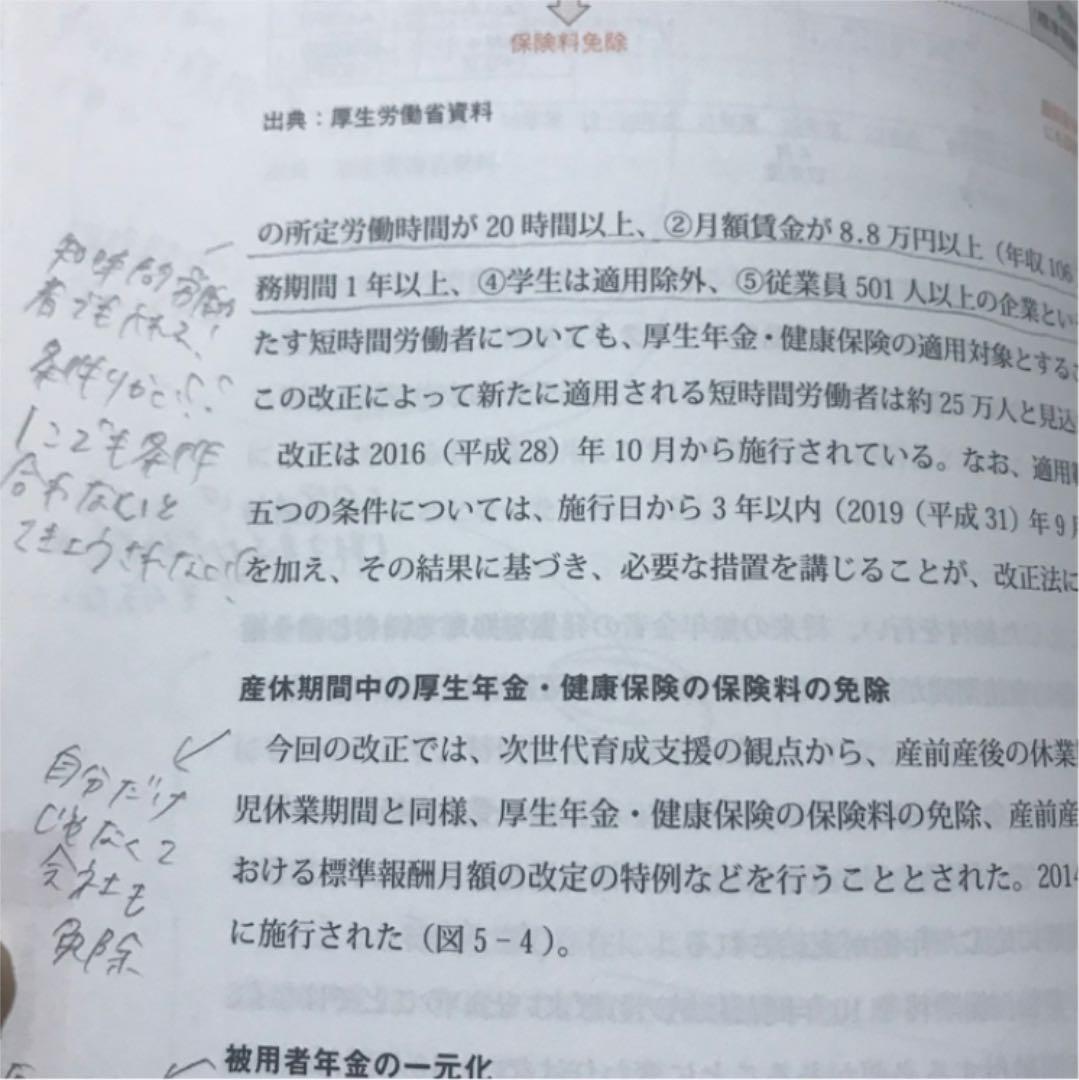 保険料免除
出典：厚生労働省資料
の所定労働時間が 20 時間以上、②月額賃金が 8.8 万円以上（年収 106
務期間 1 年以上、④学生は適用除外、⑤従業員 501 人以上の企業とい
たす短時間労働者についても、厚生年金・健康保険の適用対象とするこ
この改正によって新たに適用される短時間労働者は約 25 万人と見込
改正は 2016（平成 28）年 10 月から施行されている。なお、適用
五つの条件については、施行日から 3 年以内（2019（平成 31）年 9 月
を加え、その結果に基づき、必要な措置を講じることが、改正法に
短時間労働
者でも
条件
1こでも条件
合わないと
てきようされない
産休期間中の厚生年金・健康保険の保険料の免除
今回の改正では、次世代育成支援の観点から、産前産後の休業
児休業期間と同様、厚生年金・健康保険の保険料の免除、産前産
おける標準報酬月額の改定の特例などを行うこととされた。2014
に施行された（図 5 - 4）。
自分だけ
じゃなくて
会社も
免除
被用者年金の一元化